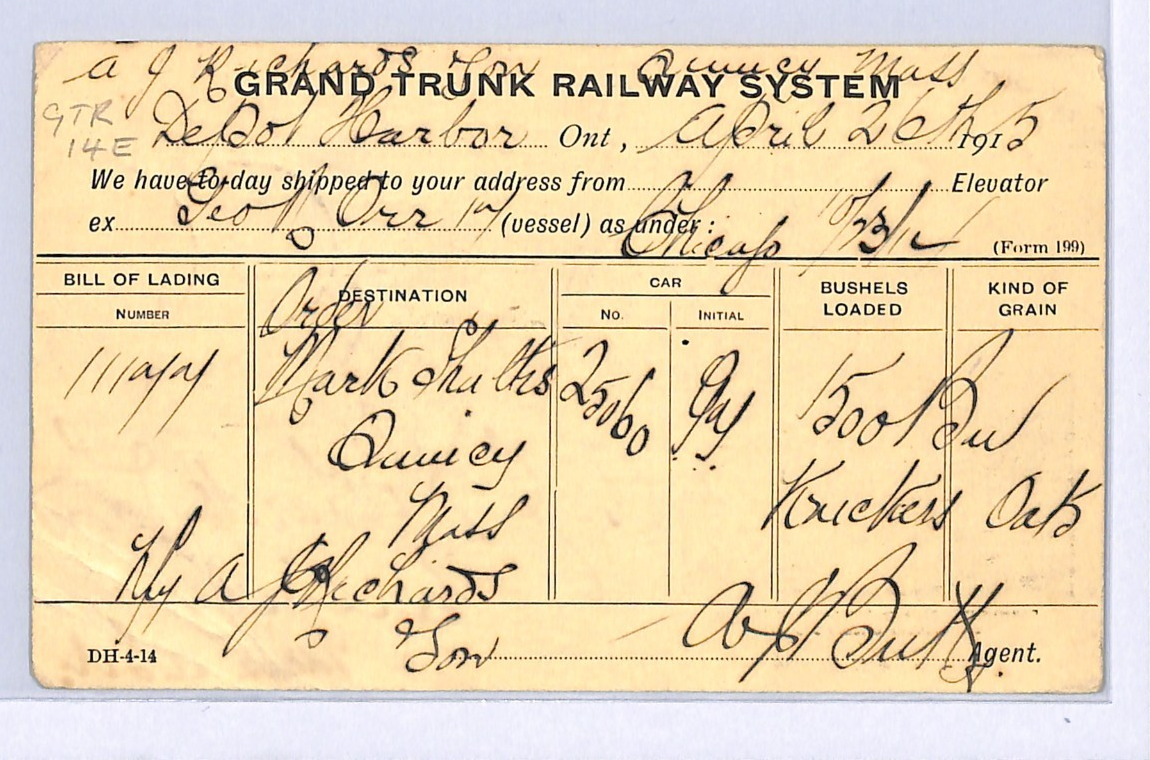 A J Richards Son Quincy Mass
GRAND TRUNK RAILWAY SYSTEM
GTR
14E
Depot Harbor Ont, April 26th 1915
We have to-day shipped to your address from Elevator
ex Geo Orr (vessel) as under:
Chicago
(Form 199)
BILL OF LADING
NUMBER
DESTINATION
CAR
NO. INITIAL
BUSHELS
LOADED
KIND OF
GRAIN
Order
Mark Shultis 25060 1500 Bu
Quincy
Mass Oats
Ny A J Richards
Son
DH-4-14
Agent.